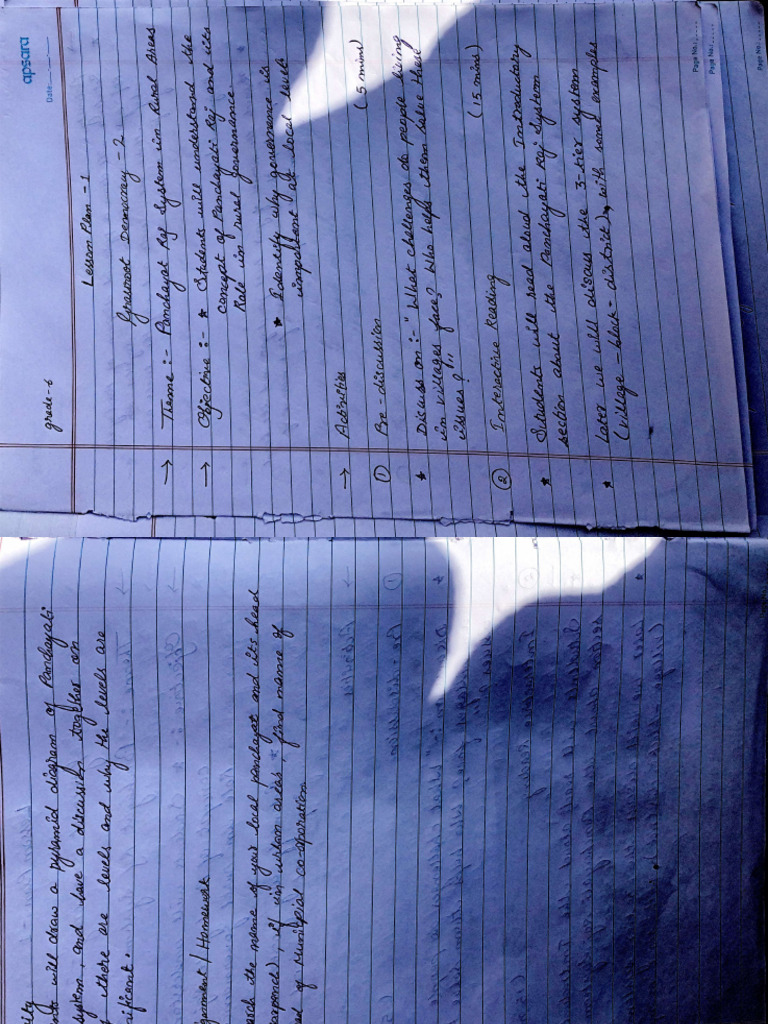 apsara
Date:
grade-6
Lesson Plan - 1
Grassroot Democracy - 2
→ Theme :- Panchayat Raj System in Rural Areas
→ Objective :- ★ Students will understand the
concept of Panchayati Raj and its
Role in rural governance
★ Identify why governance is
important at local levels
→ Activities
① Pre-discussion (5 mins)
★ Discuss on :- "What challenges do people living
in villages face? Who helps them solve these
issues?"
② Interactive Reading (15 mins)
★ Students will read aloud the Introductory
section about the Panchayati Raj System
★ Later we will discuss the 3-tier system
(village - block - district), with some examples
Page No.:
Page No.:
Page No.:
will draw a pyramid diagram of Panchayati
system, and have a discussion together on
there are levels and why the levels are
/ Homework
the name of your local panchayat and its head
, if in urban areas, find name of
of Muncipial co-oporation